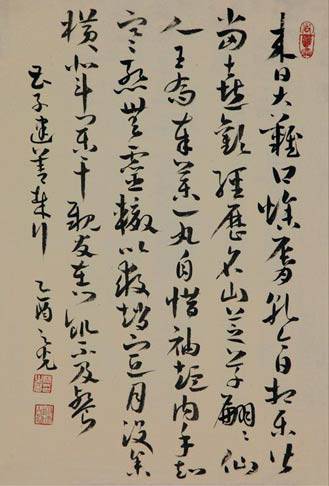 来日大難口燥唇乾今日相樂皆
當喜歡經歷名山芝草翩〻仙
人王喬奉藥一丸自惜袖短内手知
寒慙無靈輒以報趙宣月没參
横北斗闌干親友在门飢不及餐
曹子建善哉行 乙酉